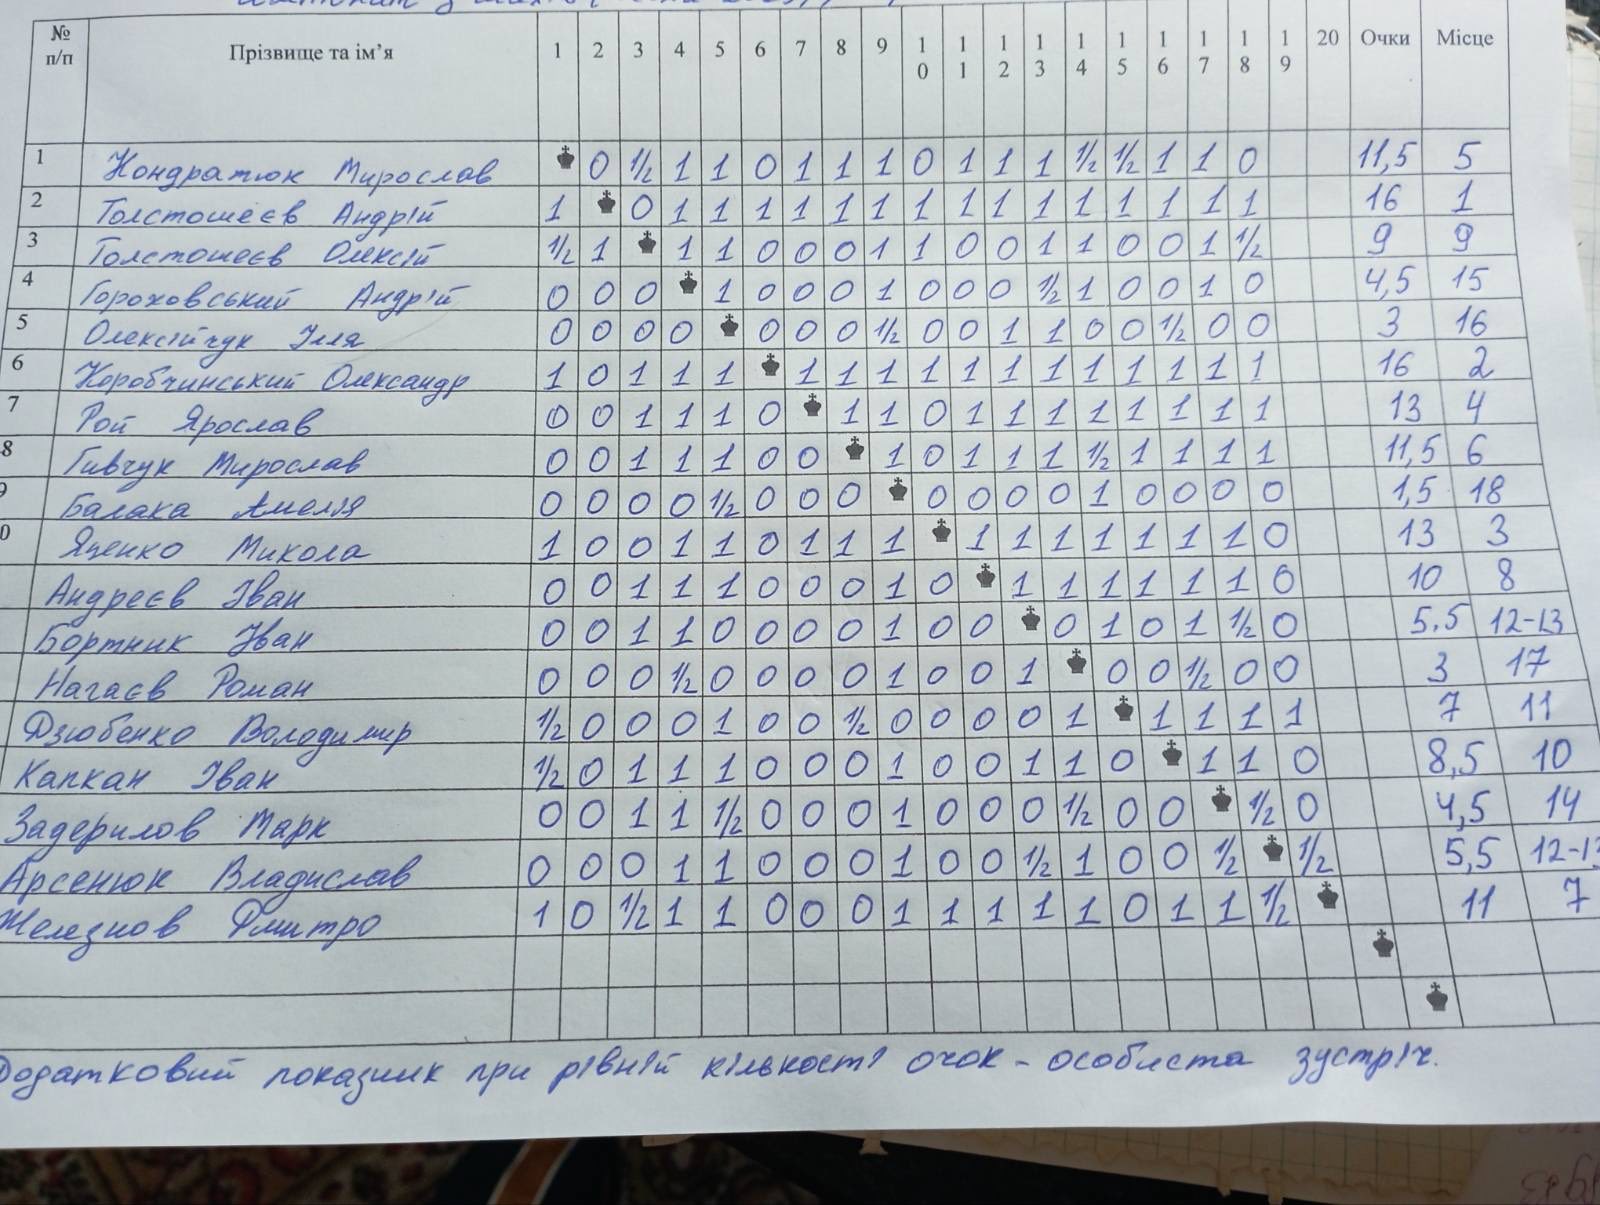 № п/п Прізвище та ім’я 1 2 3 4 5 6 7 8 9 10 11 12 13 14 15 16 17 18 19 20 Очки Місце
1 Кондратюк Мирослав 0 1/2 1 1 0 1 1 1 0 1 1 1 1/2 1/2 1 1 0 11,5 5
2 Толстошеєв Андрій 1 0 1 1 1 1 1 1 1 1 1 1 1 1 1 1 1 16 1
3 Толстошеєв Олексій 1/2 1 1 1 0 0 0 1 1 0 0 1 1 0 0 1 1/2 9 9
4 Гороховський Андрій 0 0 0 1 0 0 0 1 0 0 0 1/2 1 0 0 1 0 4,5 15
5 Олексійчук Ілля 0 0 0 0 0 0 0 1/2 0 0 1 1 0 0 1/2 0 0 3 16
6 Коробчинський Олександр 1 0 1 1 1 1 1 1 1 1 1 1 1 1 1 1 1 16 2
7 Рой Ярослав 0 0 1 1 1 0 1 1 0 1 1 1 1 1 1 1 1 13 4
8 Гивчук Мирослав 0 0 1 1 1 0 0 1 0 1 1 1 1/2 1 1 1 1 11,5 6
Балака Амелія 0 0 0 0 1/2 0 0 0 0 0 0 0 1 0 0 0 0 1,5 18
0 Яценко Микола 1 0 0 1 1 0 1 1 1 1 1 1 1 1 1 1 0 13 3
Андреєв Іван 0 0 1 1 1 0 0 0 1 0 1 1 1 1 1 1 0 10 8
Бортник Іван 0 0 1 1 0 0 0 0 1 0 0 0 1 0 1 1/2 0 5.5 12-13
Нагаєв Роман 0 0 0 1/2 0 0 0 0 1 0 0 1 0 0 1/2 0 0 3 17
Дзюбенко Володимир 1/2 0 0 0 1 0 0 1/2 0 0 0 0 1 1 1 1 1 7 11
Капкан Іван 1/2 0 1 1 1 0 0 0 1 0 0 1 1 0 1 1 0 8,5 10
Задерилов Марк 0 0 1 1 1/2 0 0 0 1 0 0 0 1/2 0 0 1/2 0 4,5 14
Арсенюк Владислав 0 0 0 1 1 0 0 0 1 0 0 1/2 1 0 0 1/2 1/2 5,5 12-13
Железнов Дмитро 1 0 1/2 1 1 0 0 0 1 1 1 1 1 0 1 1 1/2 11 7
Додатковий показник при рівній кількості очок - особиста зустріч.